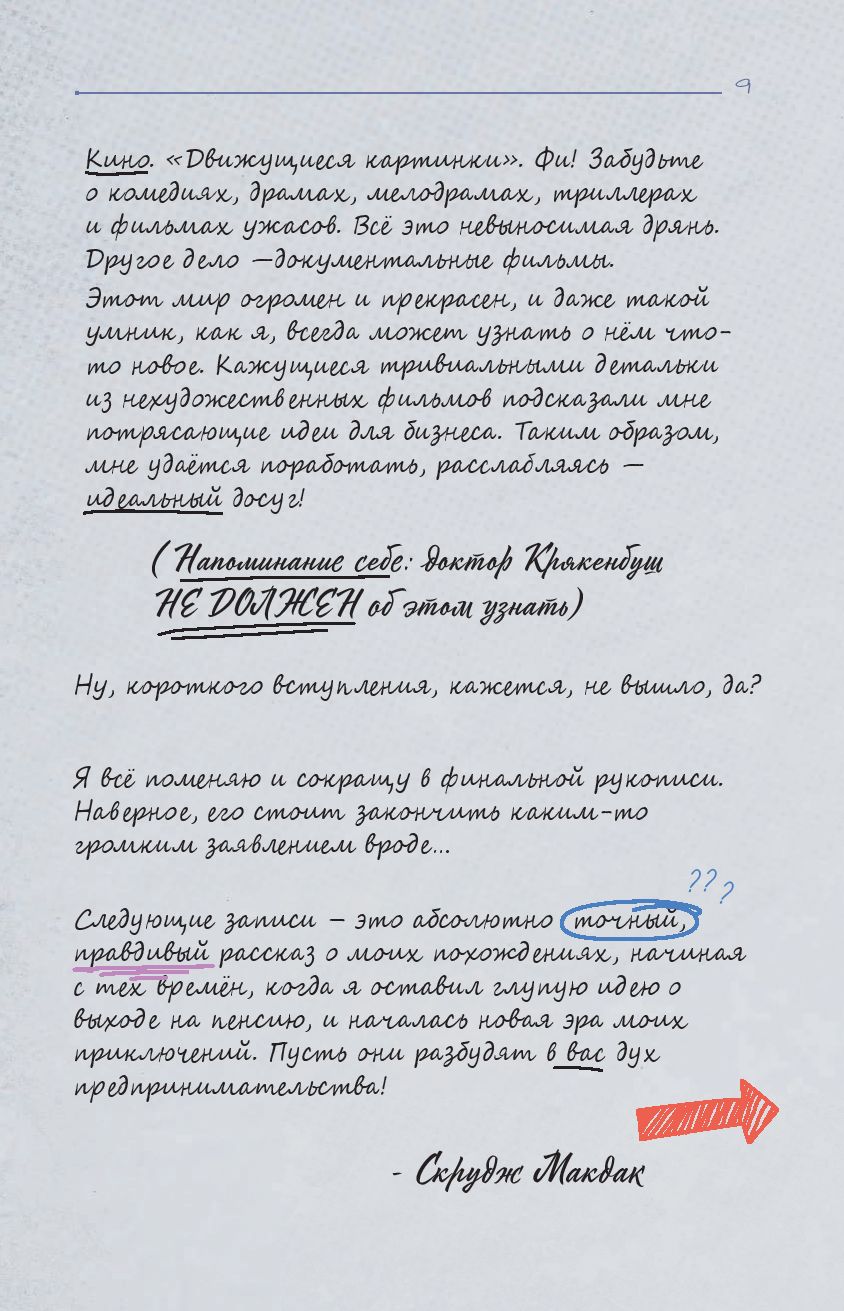 9
Кино. «Движущиеся картинки». Фи! Забудьте
о комедиях, драмах, мелодрамах, триллерах
и фильмах ужасов. Всё это невыносимая дрянь.
Другое дело —документальные фильмы.
Этот мир огромен и прекрасен, и даже такой
умник, как я, всегда может узнать о нём что-
то новое. Кажущиеся тривиальными детальки
из нехудожественных фильмов подсказали мне
потрясающие идеи для бизнеса. Таким образом,
мне удаётся поработать, расслабляясь —
идеальный досуг!
(Напоминание себе: доктор Крякенбуш
НЕ ДОЛЖЕН об этом узнать)
Ну, короткого вступления, кажется, не вышло, да?
Я всё поменяю и сокращу в финальной рукописи.
Наверное, его стоит закончить каким-то
громким заявлением вроде...
???
Следующие записи — это абсолютно точный,
правдивый рассказ о моих похождениях, начиная
с тех времён, когда я оставил глупую идею о
выходе на пенсию, и началась новая эра моих
приключений. Пусть они разбудят в вас дух
предпринимательства!
- Скрудж Макдак